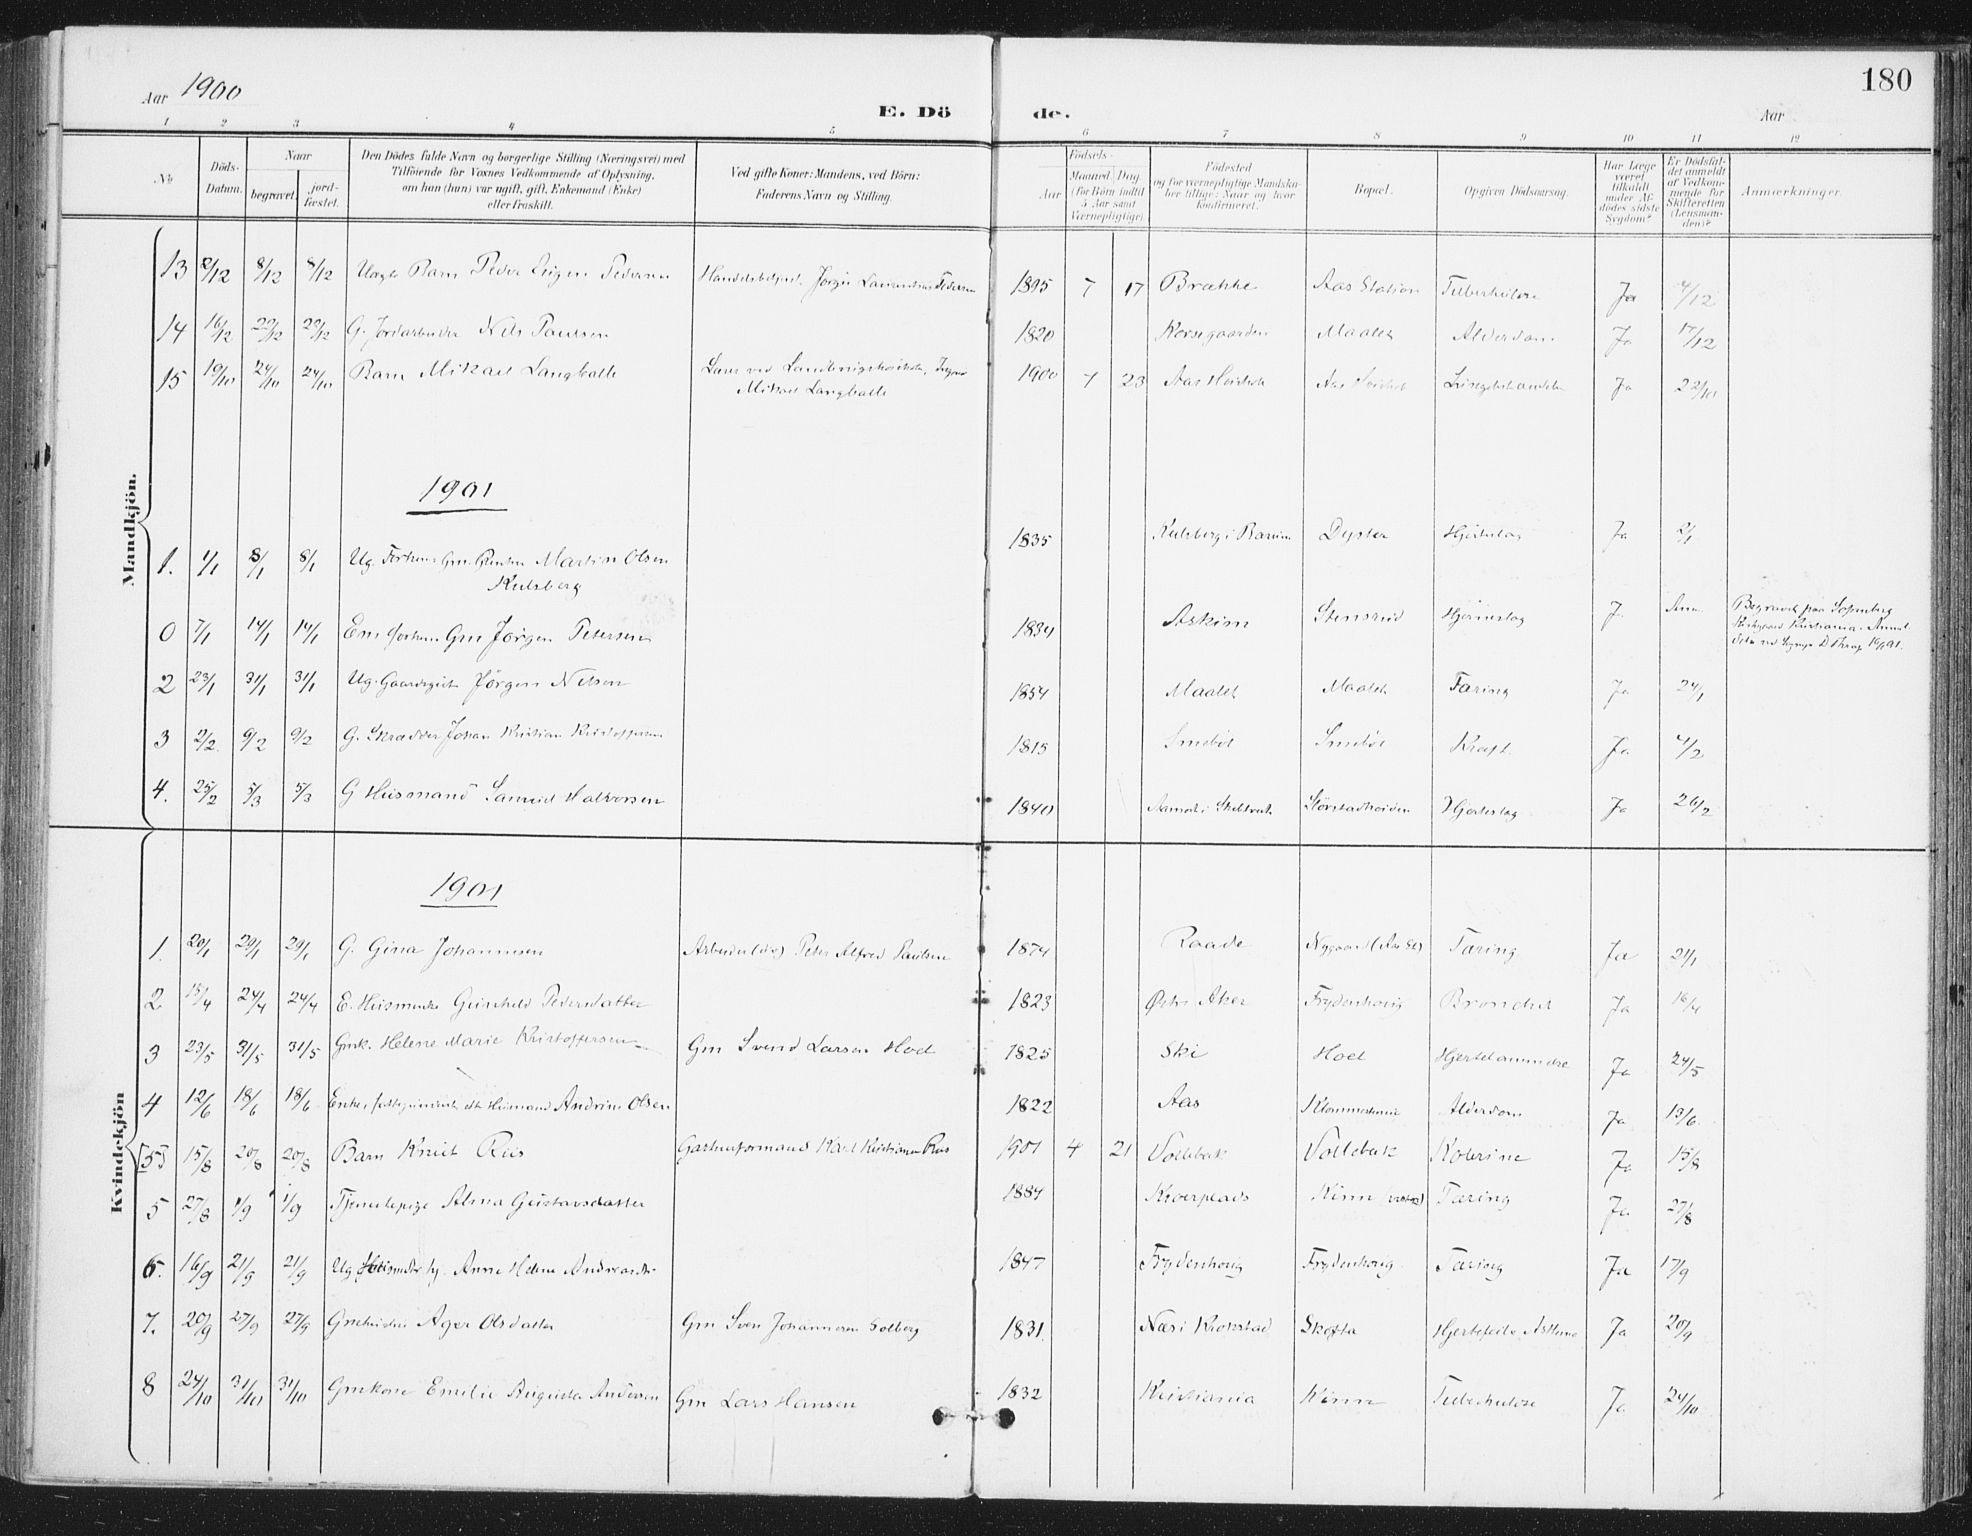 Aar 1900
E. Dö de.
Aar
180
1 2 3 4 5 6 7 8 9 10 11 12
No
Döds-Datum.
Naar
begravet. jord-fæstet.
Den Dödes fulde Navn og borgerlige Stilling (Næringsvei) med
Tilföiende for Voxnes Vedkommende af Oplysning,
om han (hun) var ugift, gift, Enkemand (Enke)
eller fraskilt.
Ved gifte Koner: Mandens, ved Börn:
Faderens Navn og Stilling.
Födsels-
Aar Maaned Dag
(for Börn indtil
5 Aar samt
Værnepligtige).
Födested
og for værnepligtige Mandskaber tillige: Naar og hvor
Konfirmeret.
Bopæl.
Opgiven Dödsaarsag.
Har Læge
været
tilkaldt
under Afdödes sidste
Sygdom?
Er Dödsfaldet anmeldt
af Vedkommende for
Skifteretten
(Lensmanden)?
Anmærkninger.
Mandkjön.
13 2/12 8/12 8/12 Barn Peder Pedersen Jørgen Laurentius Pedersen 1895 7 17 Brække Aas Station Tuberkulose Ja 4/12
14 16/12 22/12 22/12 G. Jordarbeider Nils Paulsen 1820 Korsegaarden Maalet Alderdom Ja 17/12
15 19/10 24/10 24/10 Barn Mikael Langballe 1900 7 23 Aas Høiskole Aas Høiskole Ja 22/10
Mikael Langballe
1901
1. 1/1 8/1 8/1 Ug. Martin Olsen 1835 Kulsberg i Bærum Dyster Hjerteslag Ja 2/1
Kulsberg
0 7/1 14/1 14/1 Em Gm Jørgen Petersen 1834 Askim Stensrud Hjerneslag Ja Begravet paa
Kirkegaard Kristiania.
2 23/1 31/1 31/1 Ug. Gaardsgut Jørgen Nilsen 1854 Maalet Maalet Tæring Ja 24/1
3 2/2 9/2 9/2 G. Skrædder Johan Kristian Kristoffersen 1815 Smebøl Smebøl Kræft Ja 4/2
4. 25/2 5/3 5/3 G Husmand Samuel Halvorsen 1840 Hjerteslag Ja 26/2
Kvindekjön
1901
1. 20/1 29/1 29/1 G. Gina Johannesen Peter Alfred Paulsen 1874 Raade Nygaard (Aas St) Tæring Ja 21/1
2 15/4 24/4 24/4 E. Gunhild Pedersdatter 1823 Østre Aker Frydenhoug Bronchit Ja 16/4
3 23/5 31/5 31/5 Gmk. Helene Marie Kristoffersen Gm Svend Larsen Hoel 1825 Ski Hoel Hjertelammelse Ja 24/5
4 12/6 18/6 18/6 Enke, Husmand Andrine Olsen 1822 Aas Alderdom Ja 13/6
[5] 15/8 20/8 20/8 Barn Knut Riis Gartnerformand Karl Kristianen Riis 1901 4 21 Vollebæk Vollebæk Kolerine Ja 15/8
5 27/8 1/9 1/9 Tjenestepige Alma Gustavsdatter 1884 Kinn Tæring Ja 27/8
6. 16/9 21/9 21/9 Ug Anne Helene Andreasdtr 1847 Frydenhoug Frydenhoug Tæring Ja 17/9
7. 20/9 27/9 27/9 Ager Olsdatter Gm Sven Johannesen Solberg 1831. Næs i Krokstad Skofta Hjertefeil & Asthma Ja 20/9
8 24/10 31/10 31/10 Gmkone Emilie Augusta Andersen Gm Lars Hansen 1832 Kristiania Kinn Tuberkulose Ja 24/10